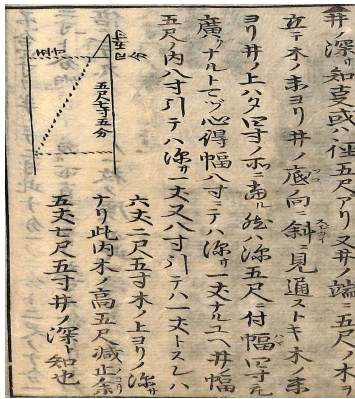 井ノ深サ知叓或ハ径五尺アリ又井ノ端ニ五尺ノ木ヲ
立テ木ノ末ヨリ井ノ底向ニ斜ニ見通ストキ木ノ末
ヨリ井ノ上ハタ四寸ノ所ニ當ル然ハ深五尺ニ付幅四寸充
廣クナルトマヅ心得幅八寸ニテハ深サ一丈ナルユヘ井ノ幅
五尺ノ内八寸引テハ深サ一丈又八寸引テハ一丈トスレハ
六丈二尺五寸木ノ上ヨリノ深サ
ナリ此内木ノ高五尺減止余
五丈七尺五寸井ノ深ト知也
五尺七寸五分